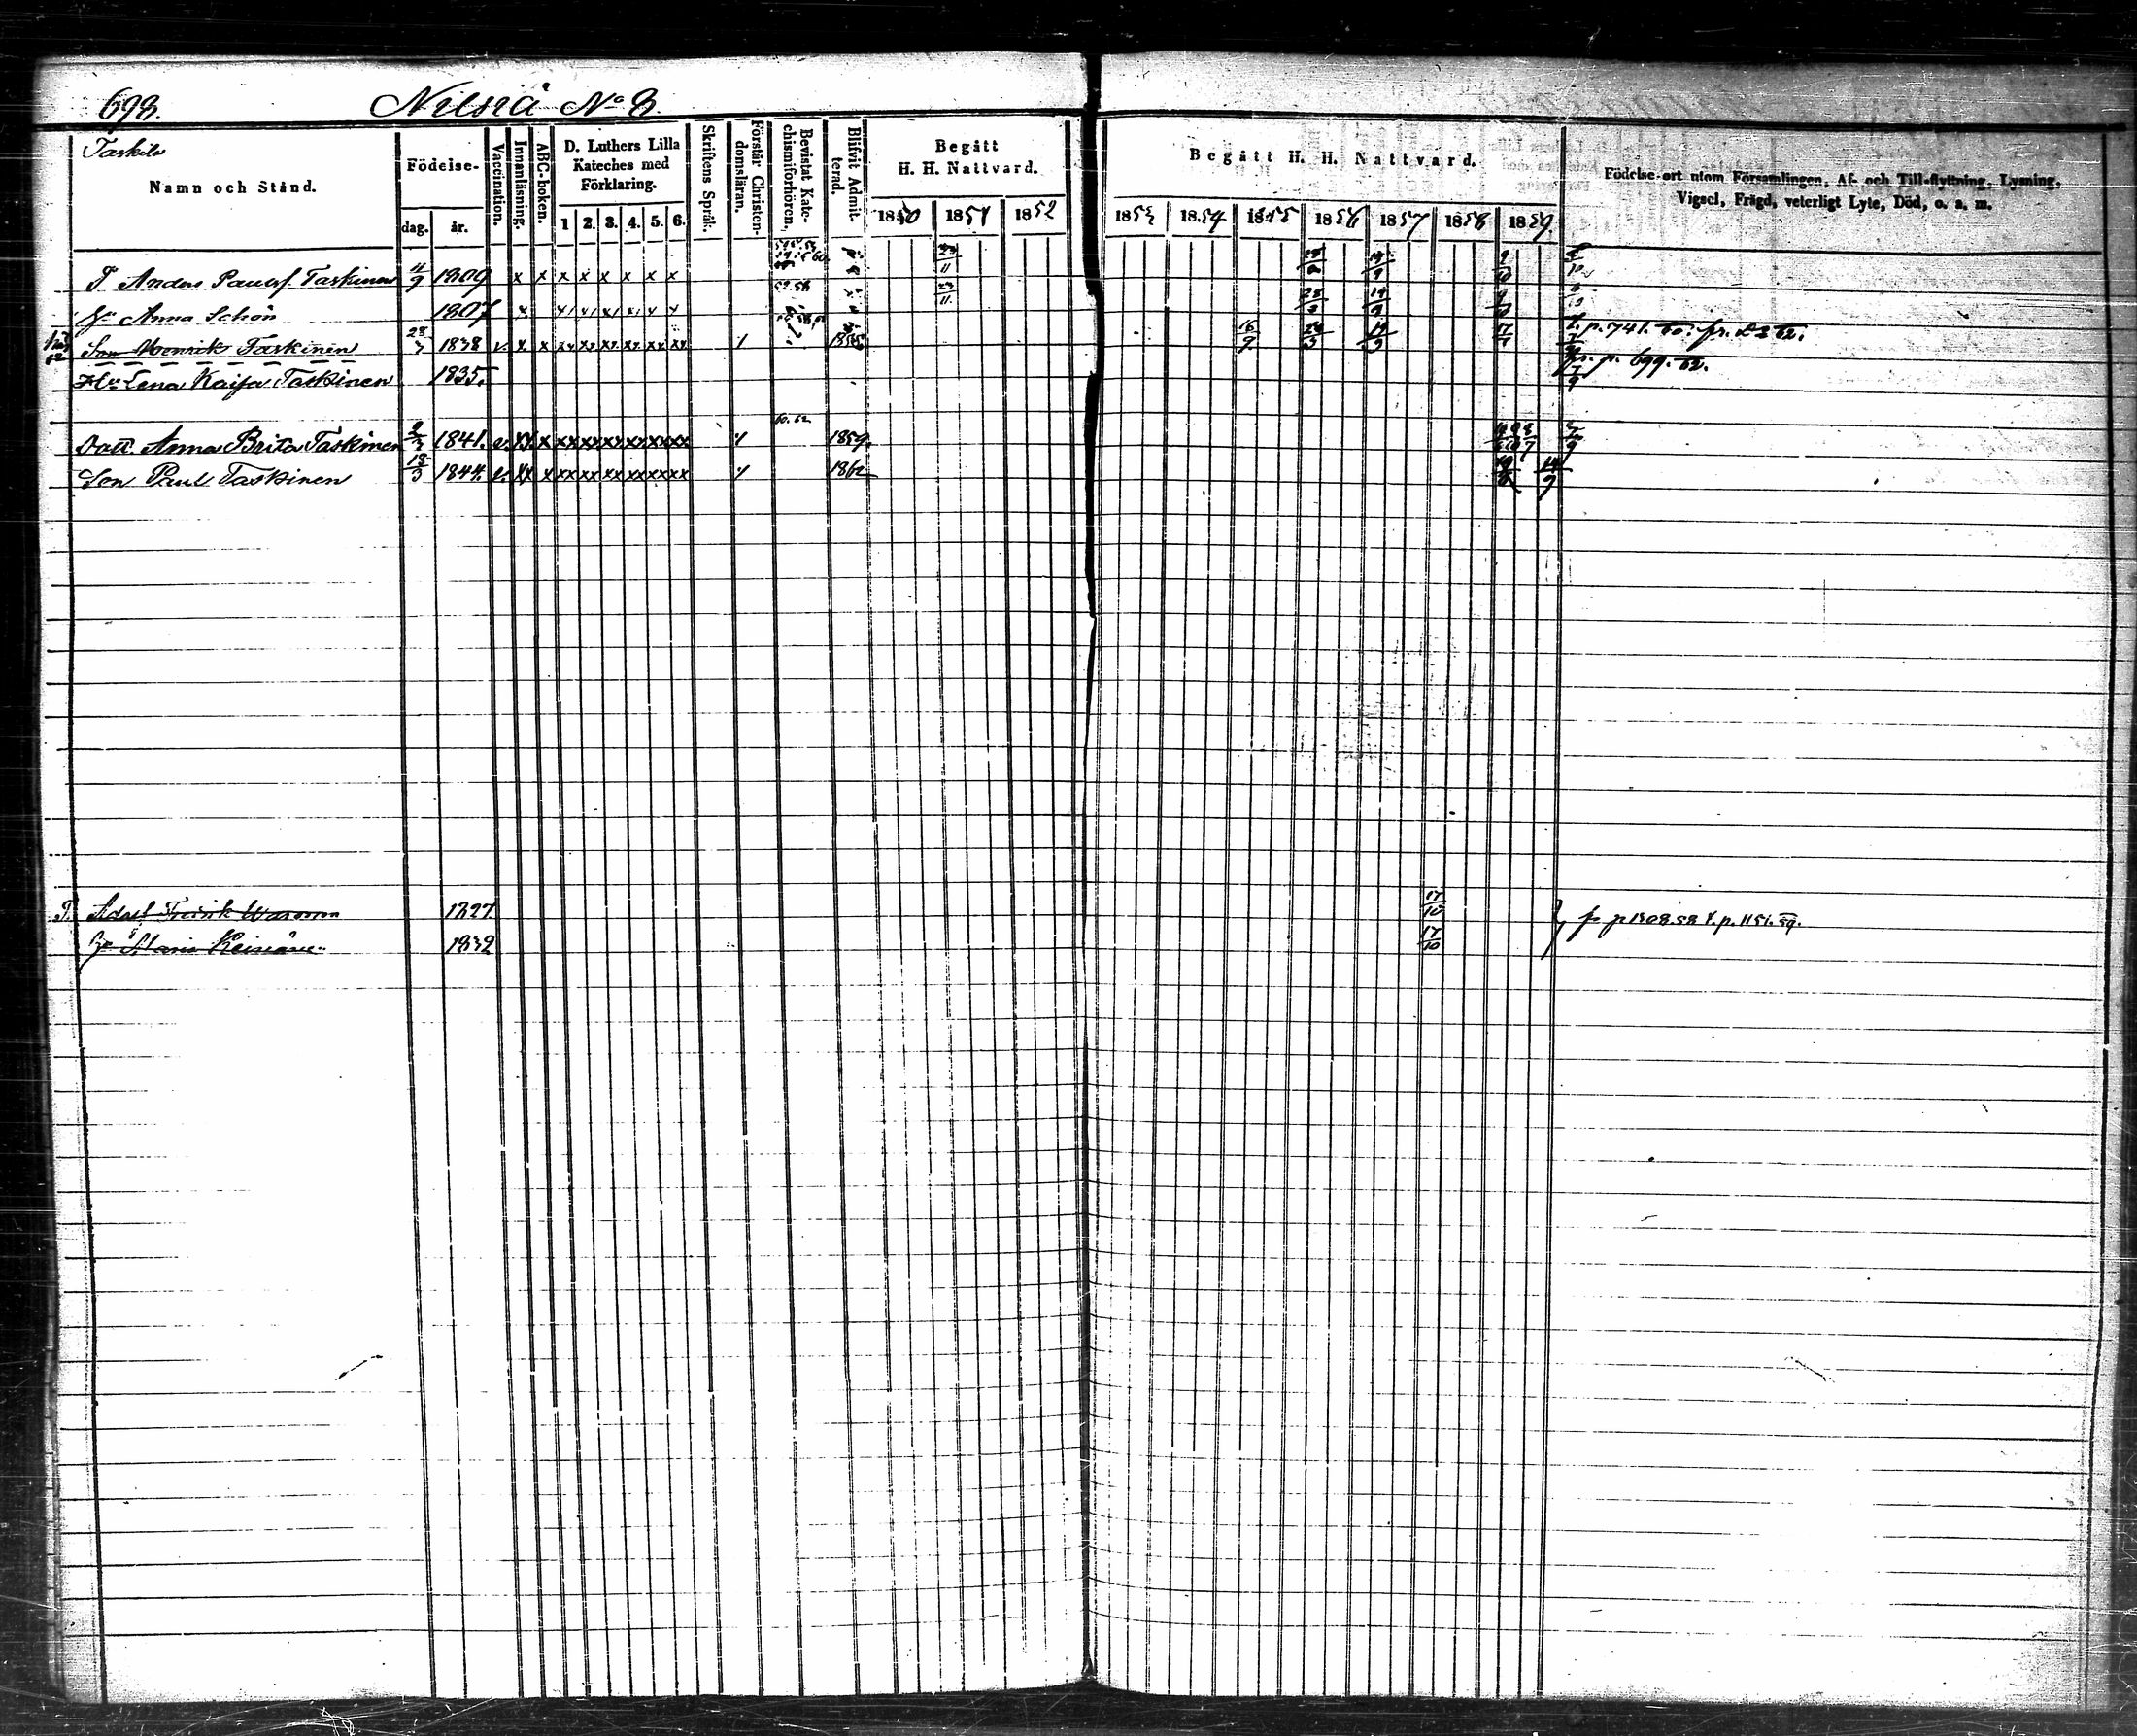 698. Nilsiä No 8.
Taskila
Namn och Stånd.
Födelse-
dag. år.
Vaccination.
Innanläsning.
ABC-boken.
D. Luthers Lilla
Kateches med
Förklaring.
1 2. 3. 4. 5. 6.
Skriftens Språk.
Förstår Christen-
domsläran.
Bevistat Kate-
chismiförhören.
Blifvit Admit-
terad.
Begått
H. H. Nattvard.
1850 1851 1852
Begått H. H. Nattvard.
1853 1854 1855 1856 1857 1858 1859
Födelse-ort utom Församlingen, Af- och Till-flyttning, Lysning,
Vigsel, Frägd, veterligt Lyte, Död, o. s. m.
T. Anders Paulsf. Taskinen 11/9 1809 x x x x x x x x 23/11
Hu Anna Schön 1807 23/11
Son Henrik Taskinen 28/3 1838 v. x x xx xx xx xx xx xx 1855 16/9 t. p. 741. 60. fr. 62.
Hu Lena Kaisa Taskinen 1835. fr. p. 699. 62.
60. 62
Dott. Anna Brita Taskinen 1841. v. xx x xx xx xx xx xx xx 1859.
Son Paul Taskinen 18/3 1844. v. xx x xx xx xx xx xx xx 1862
T. Adolf Fredrik 1827 17/10 fr p 1308. 58 t. p. 1151. 59.
Hu Maria 1832 17/10